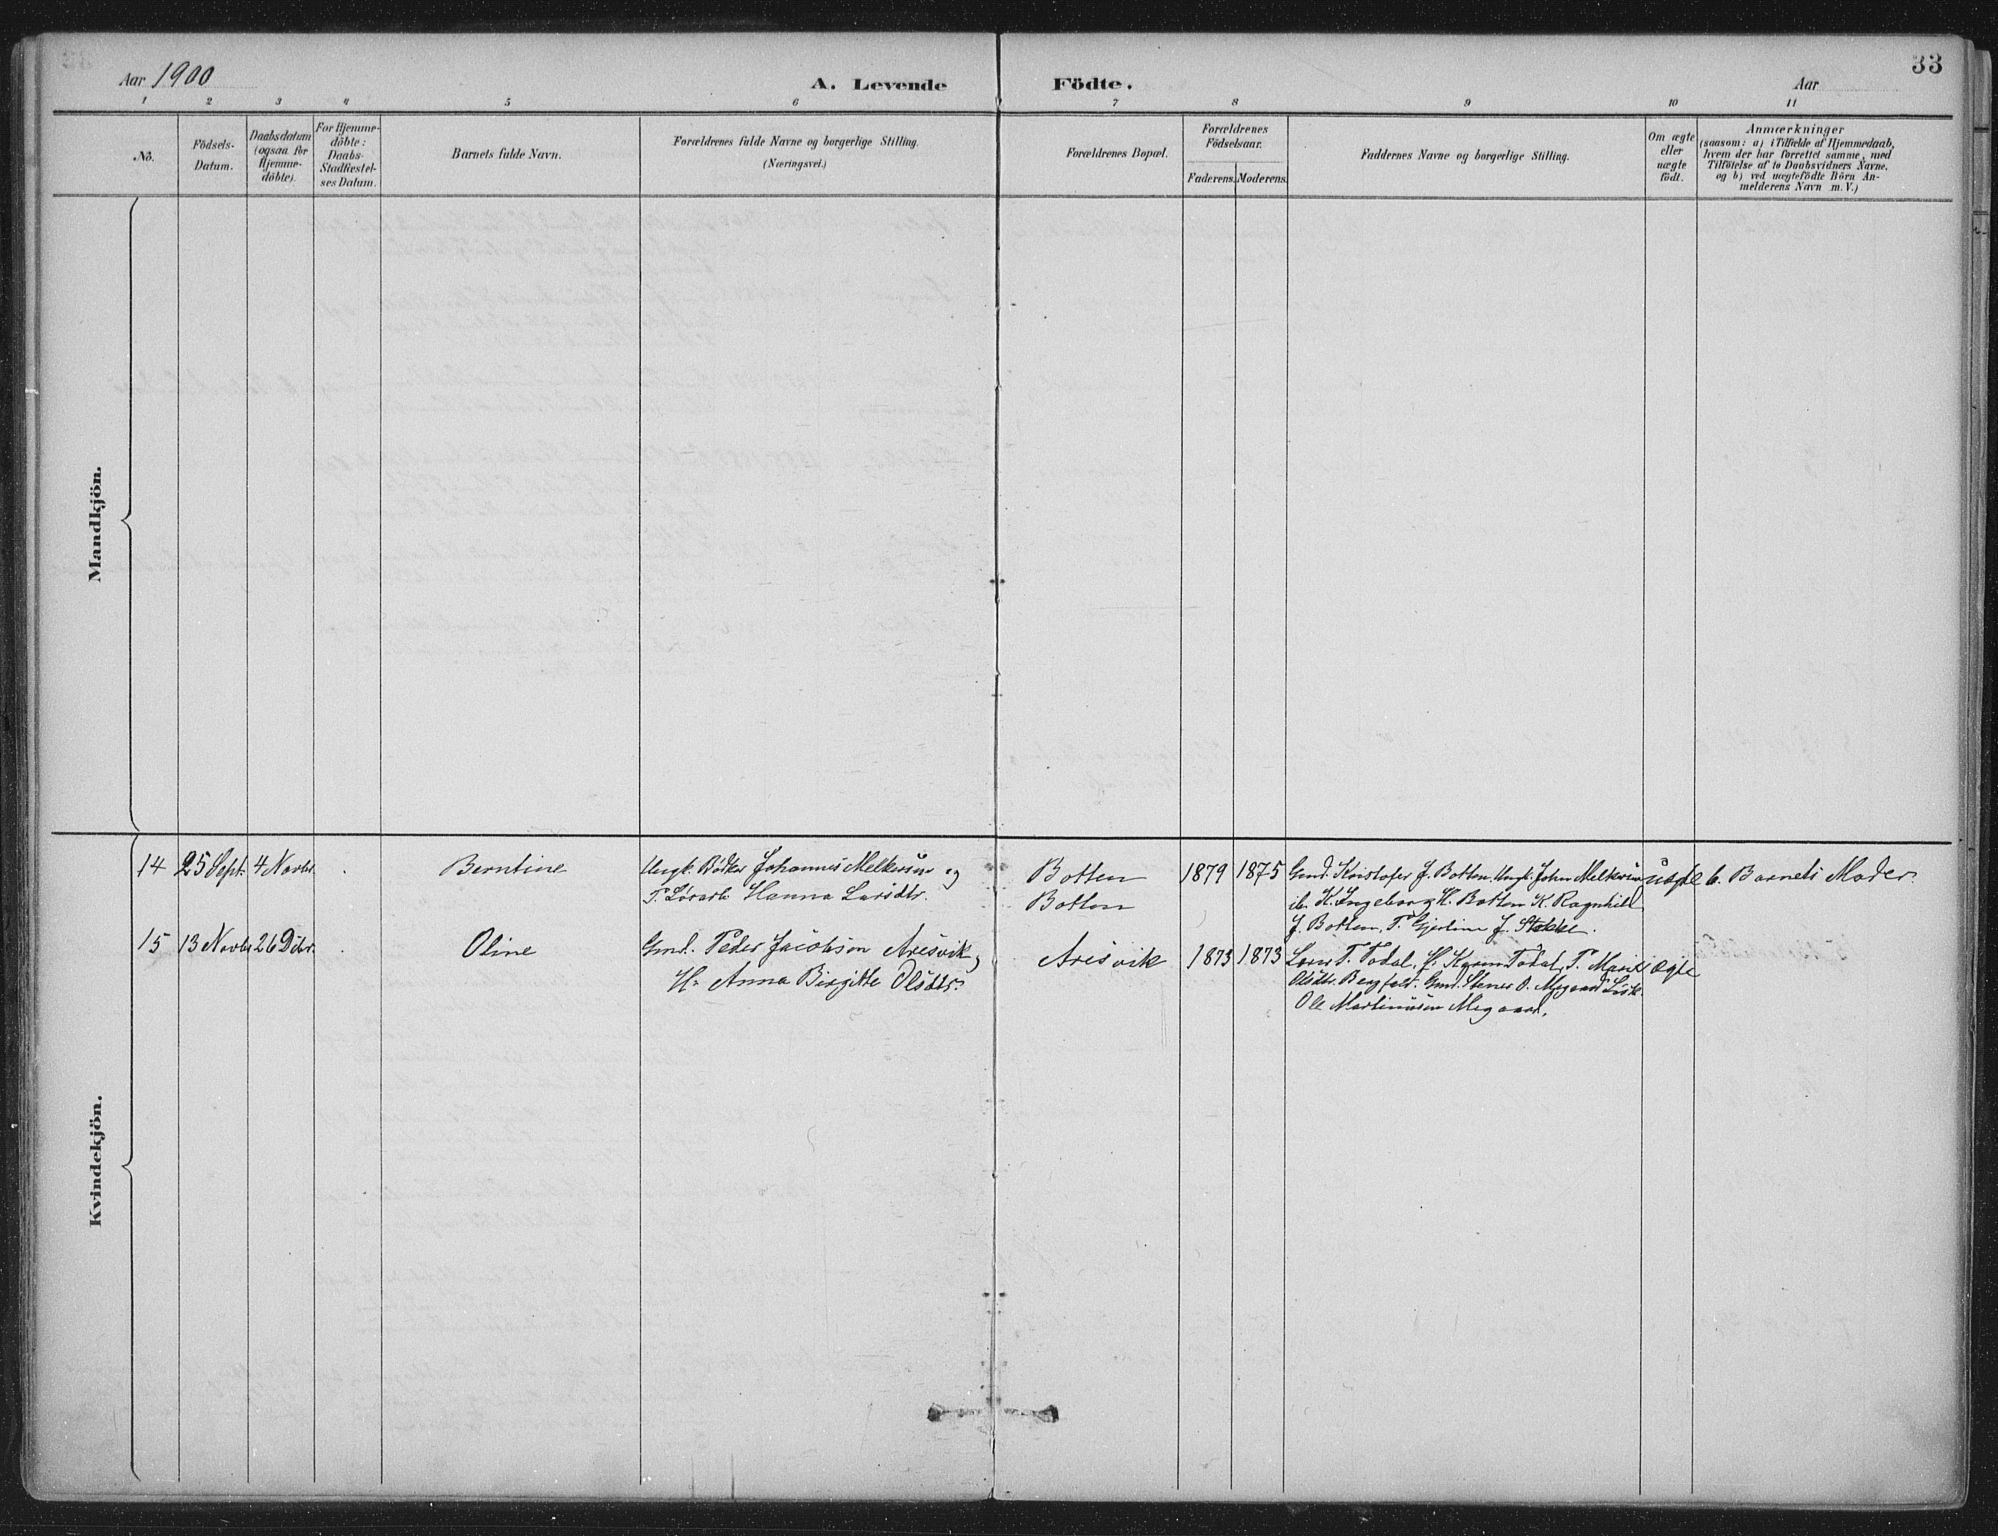 33
Aar 1900
A. Levende Födte.
Aar
1 2 3 4 5 6 7 8 9 10 11
No.
Födsels-
Datum.
Daabsdatum
(ogsaa for
Hjemme-
döbte).
For Hjemme-
döbte:
Daabs-
Stadfæstel-
ses Datum.
Barnets fulde Navn.
Forældrenes fulde Navne og borgerlige Stilling.
(Næringsvei.)
Forældrenes Bopæl.
Forældrenes
Födselsaar.
Faderens. Moderens.
Faddernes Navne og borgerlige Stilling.
Om ægte
eller
uægte
födt.
Anmærkninger
(saasom: a) i Tilfælde af Hjemmedaab,
hvem der har forrettet samme, med
Tilföielse af to Daabsvidners Navne,
og b) ved uægtefödte Börn An-
melderens Navn m. V.)
Mandkjön.
Kvindekjön.
14 25 Sept. 4 Novbr. Berntine
Ungk. Bødker Johannes Melkersen og
T. Hanna Larsdtr.
Botten
Botten
1879 1875
Gmd. Kristofer J. Botten, Ungk. John Melkersen
ib. K. Ingeborg H. Botten K. Ragnhild
J. Botten, P. Gjertine J. Stokke.
uægte
b. Barnets Moder.
15 13 Novbr 26 Dcbr. Oline
Gmd. Peder Jacobson Aresvik
H. Anna Birgitte Olsdtr.
Aresvik
1873 1873
Lars T. Todal, H. Karen Todal, P. Marit
Olsdtr. Bergfald. Gmd. Stener O. Megaard
Ole Martinusen Megaard.
ægte